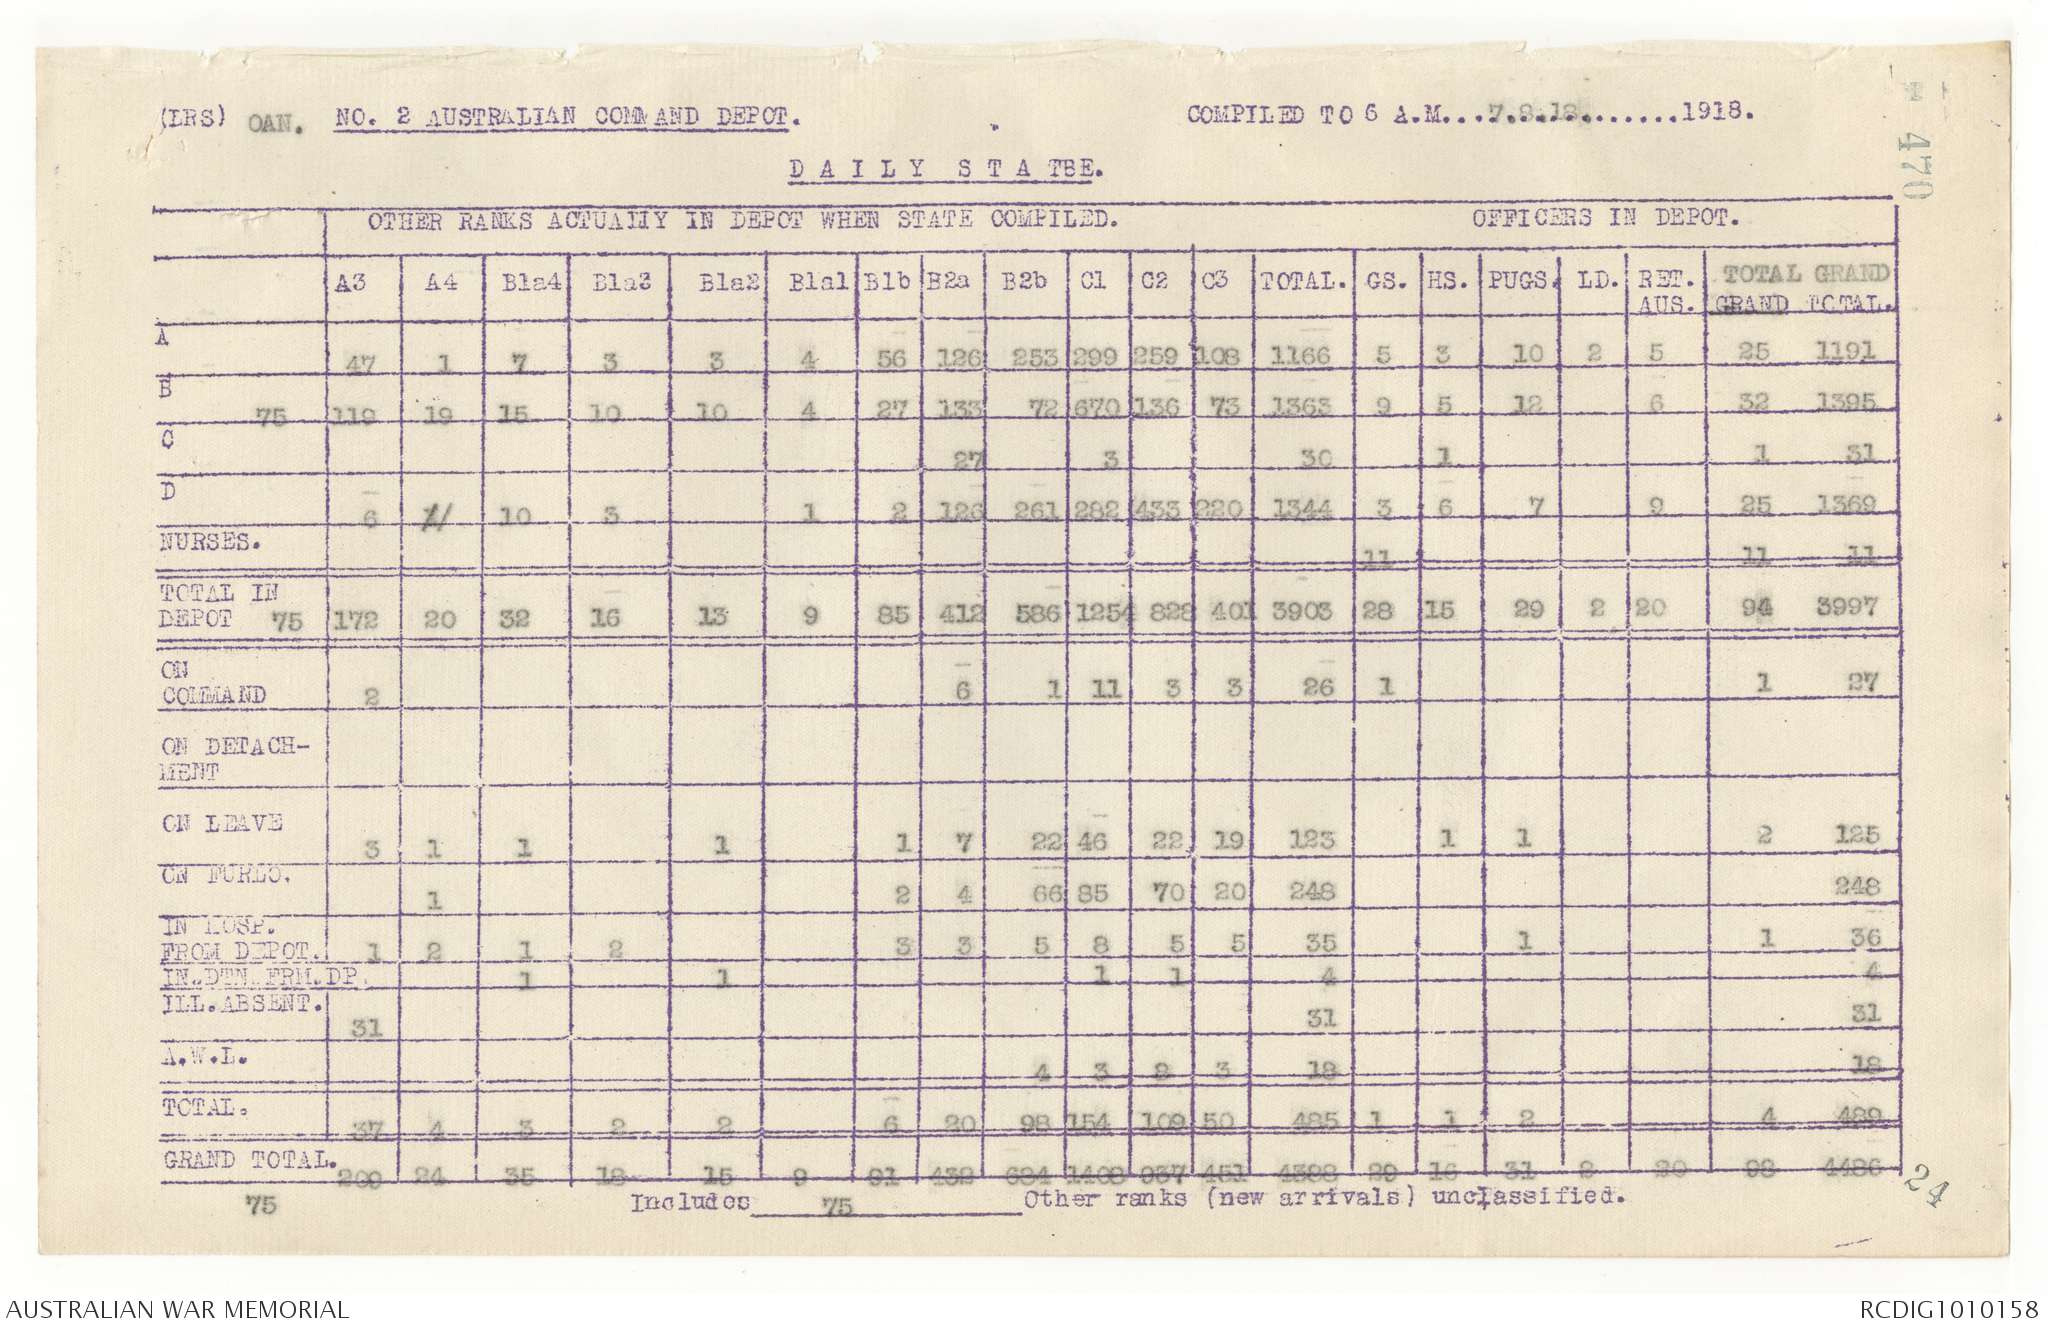 (LRS) OAN. NO. 2 AUSTRALIAN COMMAND DEPOT. COMPILED TO 6 A.M...7.8.18.........1918.
470
D A I L Y  S T A TBE.
OTHER RANKS ACTUALLY IN DEPOT WHEN STATE COMPILED. OFFICERS IN DEPOT.
A3 A4 B1a4 B1a3 B1a2 B1a1 B1b B2a B2b C1 C2 C3 TOTAL. GS. HS. PUGS. LD. RET. AUS. TOTAL GRAND
GRAND TOTAL.
A 47 1 7 3 3 4 56 126 253 299 259 108 1166 5 3 10 2 5 25 1191
B 75 119 19 15 10 10 4 27 133 72 670 136 73 1363 9 5 12 6 32 1395
C 27 3 30 1 1 31
D 6 10 3 1 2 126 261 282 433 220 1344 3 6 7 9 25 1369
NURSES. 11 11 11
TOTAL IN
DEPOT 75 172 20 32 16 13 9 85 412 586 1254 828 401 3903 28 15 29 2 20 94 3997
ON
COMMAND 2 6 1 11 3 3 26 1 1 27
ON DETACH-
MENT
ON LEAVE 3 1 1 1 1 7 22 46 22 19 123 1 1 2 125
ON FURLO. 1 2 4 66 85 70 20 248 248
IN HOSP.
FROM DEPOT. 1 2 1 2 3 3 5 8 5 5 35 1 1 36
IN.DTN.FRM.DP. 1 1 1 1 4 4
ILL.ABSENT. 31 31 31
A.W.L. 4 3 8 3 18 18
TOTAL. 37 4 3 2 2 6 20 98 154 109 50 485 1 1 2 4 489
GRAND TOTAL. 209 24 35 18 15 9 91 432 684 1408 937 451 4388 29 16 31 2 20 98 4486
75 Includes 75 Other ranks (new arrivals) unclassified.
24
AUSTRALIAN WAR MEMORIAL RCDIG1010158